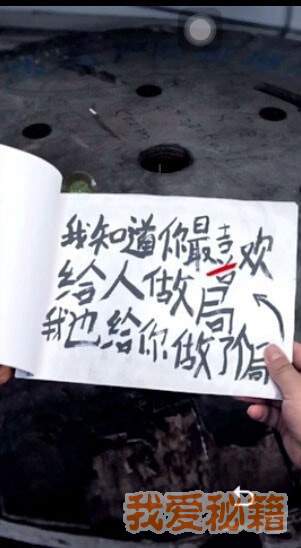 我知道你最喜欢
给人做局
我也给你做了局
我爱秘籍